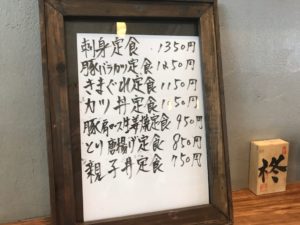 刺身定食 1350円
豚バラカツ定食 1250円
きまぐれ定食 1150円
カツ丼定食 1050円
豚肩ロース生姜焼定食 950円
とり唐揚げ定食 850円
親子丼定食 750円
柊